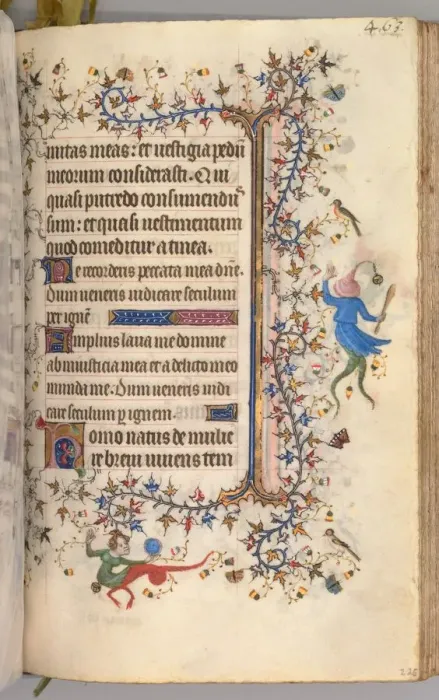 mitas meas: et uestigia pedū
meorum considerasti. Qui
quasi putredo consumendus
sum: et quasi uestimentum
quod comeditur a tinea.
Ne recorderis peccata mea dn̄e.
Dum ueneris iudicare seculum
per ignē
Amplius laua me domine
ab iniusticia mea et a delicto meo
munda me. Dum ueneris iudi
care seculum p ignem.
Homo natus de mulie
re breui uiuens tem